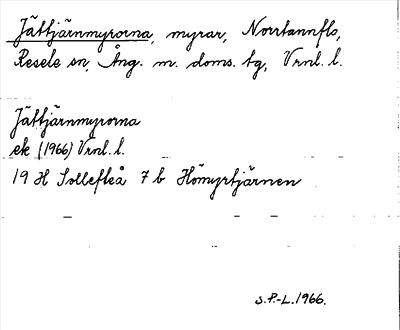 Jättjärnmyrorna, myrar, Norrtannflo,
Resele sn, Ång. m. doms. tg, Vrnl. l.
Jättjärnmyrorna
ek (1966) Vrnl. l.
19 H Sollefteå 7 b Hömyrtjärnen
S.P.-L. 1966.